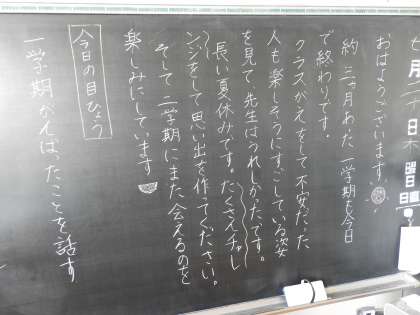 七月二 日 木曜日
おはようございます。
約三ヶ月あった一学期も今日
で終わりです。
クラスがえをして不安だった
人も楽しそうにすごしている姿
を見て先生はうれしかったです。
長い夏休みです。たくさんチャレ
ンジをして思い出を作ってください。
そして二学期にまた会えるのを
楽しみにしています
今日の目ひょう
一学期がんばったことを話す